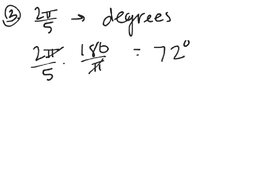 ③ 2π/5 → degrees
2π/5 · 180/π = 72°